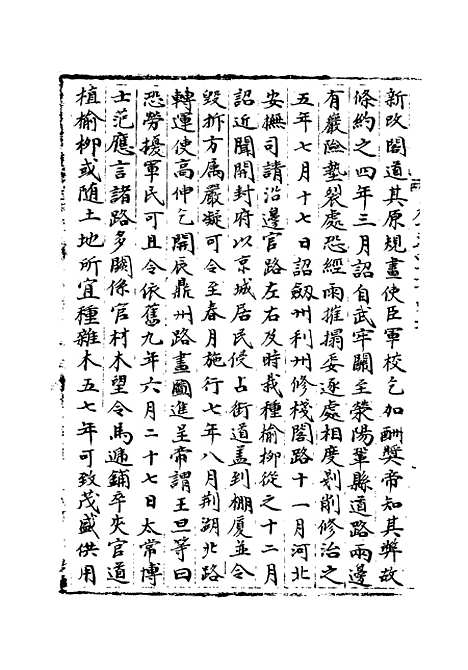 新改閣道其原規畫使臣軍校乞加酬獎帝知其弊故
條約之四年三月詔自武牢關至滎陽鞏縣道路兩邊
有巖險墊裂處恐經雨摧塌委逐處相度剗削修治之
五年七月十七日詔劔州利州修棧閣路十一月河北
安撫司請沿邊官路左右及時栽種榆柳從之十二月
詔近聞開封府以京城居民侵占街道盖到棚厦並令
毀拆方属嚴凝可令至春月施行七年八月荆湖北路
轉運使高伸乞開辰鼎州路畫圖進呈帝謂王旦等曰
恐勞擾軍民可且令依舊九年六月二十七日太常博
士范應言諸路多闕係官材木望令馬遞鋪卒夾官道
植榆柳或随土地所宜種雜木五七年可致茂盛供用